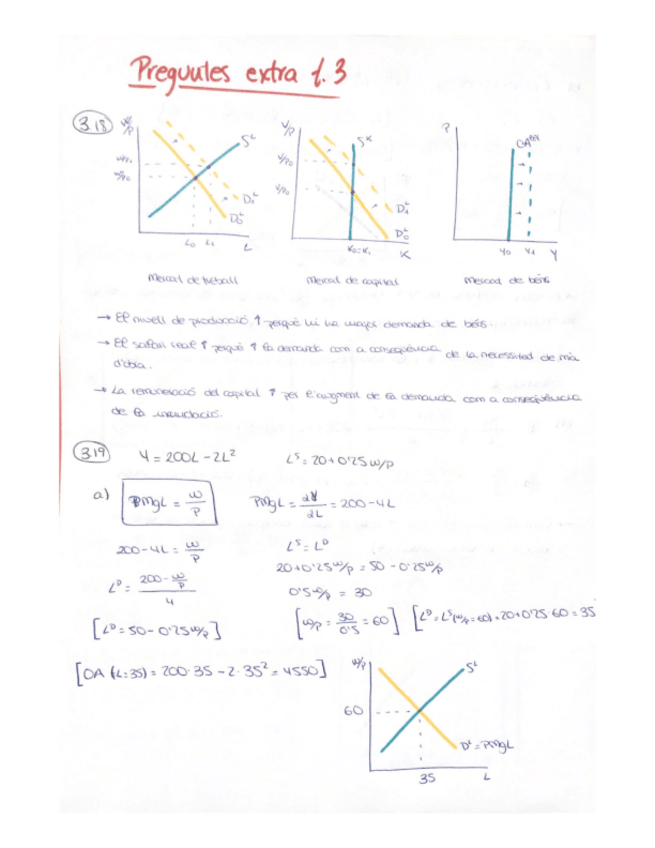 Preguntes extra t.3
3.18
W/P
S^L
W/P₁
W/P₀
D₁^L
D₀^L
L₀ L₁ L
V/P
S^K
V/P₁
V/P₀
D₁^L
D₀^L
K₀=K₁
K
P
Y₀ Y₁ Y
Mercat de treball
Mercat de capital
Mercat de béns
→ El nivell de producció ↑ perquè hi ha major demanda de béns.
→ El salari real ↑ perquè ↑ la demanda com a conseqüència de la necessitat de mà
d'obra.
→ La remuneració del capital ↑ per l'augment de la demanda com a conseqüència
de la
3.19
Y = 200L - 2L²
L^S = 20+0'25 W/P
a)
PMgL = W/P
PMgL = dY/dL = 200-4L
200-4L = W/P
L^S = L^D
L^D = (200 - W/P)/4
20+0'25 W/P = 50 - 0'25 W/P
0'5 W/P = 30
[L^D = 50 - 0'25 W/P]
[W/P = 30/0'5 = 60] [L^D = L^S (W/P=60) = 20+0'25·60 = 35
[OA (L=35) = 200·35 - 2·35² = 4550]
W/P
S^L
60
D^L = PMgL
35
L